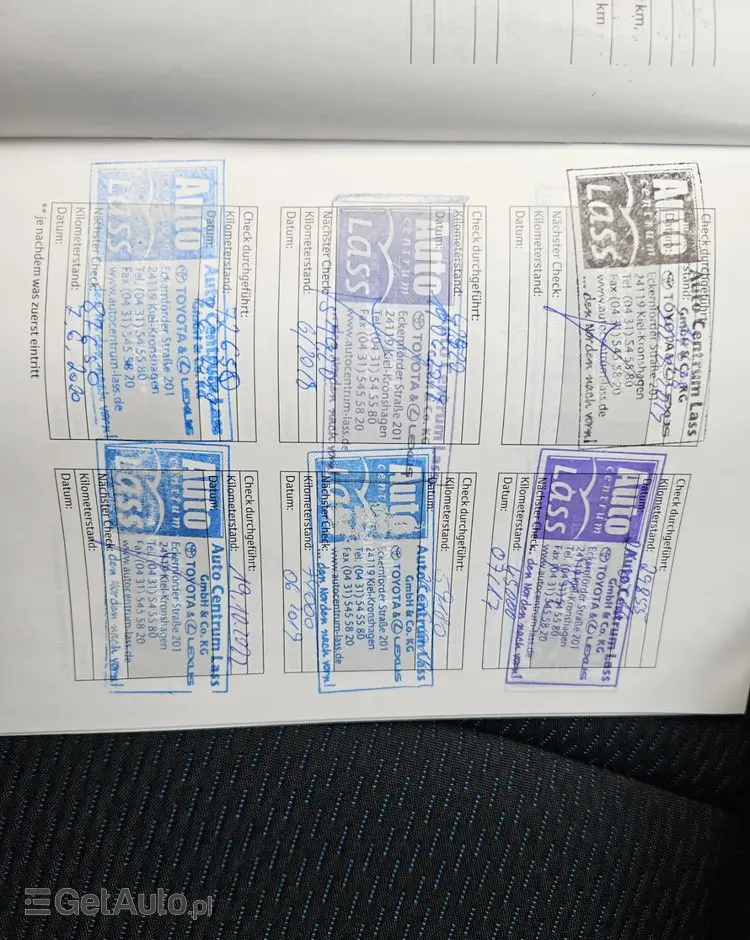 km,
km
Check durchgeführt:
Datum:
Nächster Check:
Auto
centrum
Lass
Auto Centrum Lass
GmbH & Co. KG
TOYOTA & LEXUS
Eckernförder Straße 201
24119 Kiel-Kronshagen
Tel. (04 31) 54 55 80
Fax (04 31) 545 58 20
www.autocentrum-lass.de
... den Norden nach vorn!
Check durchgeführt:
Kilometerstand: 29.855
Datum:
Nächster Check:
Kilometerstand: 45000
Datum: 07.17
Auto
centrum
Lass
Auto Centrum Lass
GmbH & Co. KG
TOYOTA & LEXUS
Eckernförder Straße 201
24119 Kiel-Kronshagen
Tel. (04 31) 54 55 80
Fax (04 31) 545 58 20
www.autocentrum-lass.de
... den Norden nach vorn!
Check durchgeführt:
Kilometerstand:
Datum:
Nächster Check:
Kilometerstand:
Datum: 6/2018
Auto
centrum
Lass
GmbH & Co. KG
TOYOTA & LEXUS
Eckernförder Straße 201
24119 Kiel-Kronshagen
Tel. (04 31) 54 55 80
Fax (04 31) 545 58 20
www.autocentrum-lass.de
Check durchgeführt:
Kilometerstand:
Datum:
Nächster Check:
Kilometerstand:
Datum: 06 2019
Auto
centrum
Lass
Auto Centrum Lass
GmbH & Co. KG
TOYOTA & LEXUS
Eckernförder Straße 201
24119 Kiel-Kronshagen
Tel. (04 31) 54 55 80
Fax (04 31) 545 58 20
www.autocentrum-lass.de
... den Norden nach vorn!
Check durchgeführt:
Kilometerstand: 72650
Datum:
Nächster Check:
Kilometerstand: 87650
Datum: 7.6.2020
Auto
centrum
Lass
Auto Centrum Lass
GmbH & Co. KG
TOYOTA & LEXUS
Eckernförder Straße 201
24119 Kiel-Kronshagen
Tel. (04 31) 54 55 80
Fax (04 31) 545 58 20
www.autocentrum-lass.de
Check durchgeführt:
Kilometerstand:
Datum:
Nächster Check:
Kilometerstand:
Datum:
Auto
centrum
Lass
Auto Centrum Lass
GmbH & Co. KG
TOYOTA & LEXUS
Eckernförder Straße 201
24119 Kiel-Kronshagen
Tel. (04 31) 54 55 80
Fax (04 31) 545 58 20
www.autocentrum-lass.de
... den Norden nach vorn!
** je nachdem was zuerst eintritt
GetAuto.pl